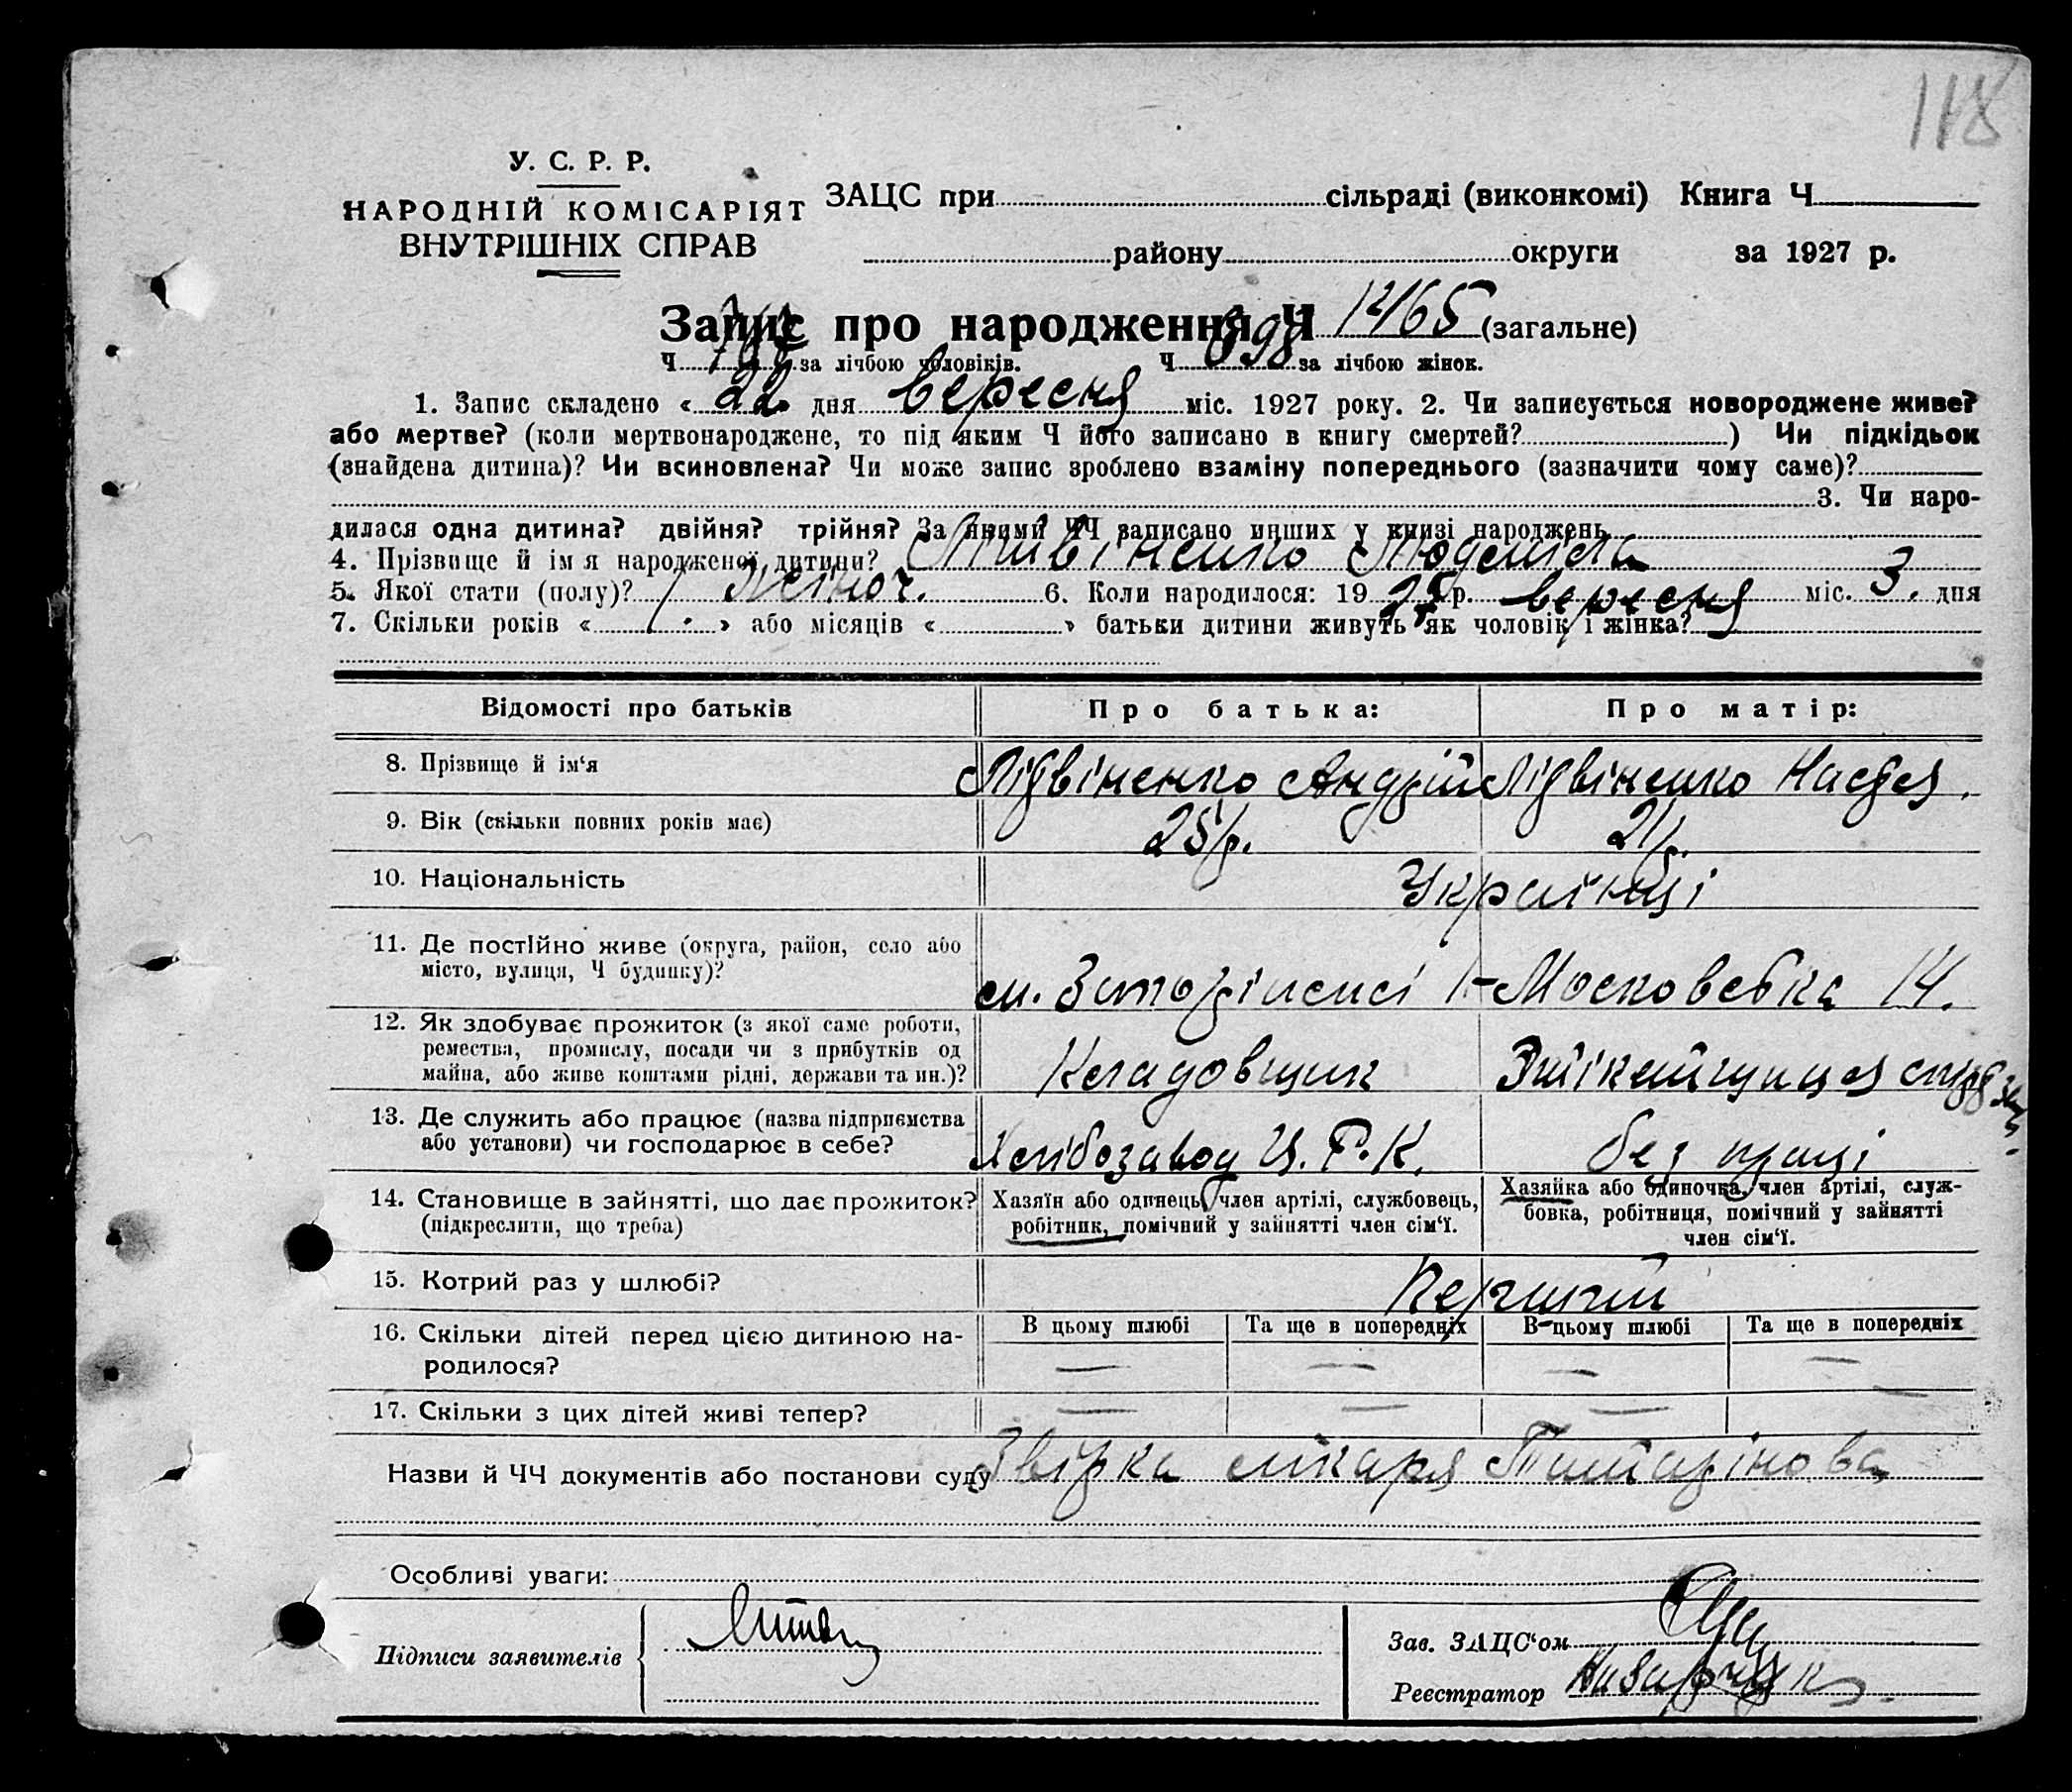 118
У. С. Р. Р.
НАРОДНІЙ КОМІСАРІЯТ
ВНУТРІШНІХ СПРАВ
ЗАЦС при сільраді (виконкомі) Книга Ч
району округи за 1927 р.
Запис про народження Ч 1465 (загальне)
Ч за лічбою чоловіків. Ч 698 за лічбою жінок.
1. Запис складено « 22 » дня вересня міс. 1927 року. 2. Чи записується новороджене живе?
або мертве? (коли мертвонароджене, то під яким Ч його записано в книгу смертей? ) Чи підкідьок
(знайдена дитина)? Чи всиновлена? Чи може запис зроблено взаміну попереднього (зазначити чому саме)?
3. Чи наро-
дилася одна дитина? двійня? трійня? За якими ЧЧ записано инших у книзі народжень
4. Прізвище й ім я народженої дитини? Літвіненко Людміла
5. Якої стати (полу)? жіноч. 6. Коли народилося: 19 р. вересня міс. 3. дня
7. Скільки років « » або місяців « » батьки дитини живуть як чоловік і жінка?
Відомості про батьків
Про батька:
Про матір:
8. Прізвище й ім‘я
Літвіненко Андрій
Літвіненко Настя.
9. Вік (скільки повних років має)
25 р.
21 р.
10. Національність
Українці
11. Де постійно живе (округа, район, село або
місто, вулиця, Ч будинку)?
Московська 14.
12. Як здобуває прожиток (з якої саме роботи,
ремества, промислу, посади чи з прибутків од
майна, або живе коштами рідні, держави та ин.)?
Кладовщик
13. Де служить або працює (назва підприємства
або установи) чи господарює в себе?
Хлібозавод Ц. Р. К.
без праці
14. Становище в зайнятті, що дає прожиток?
(підкреслити, що треба)
Хазяїн або одинець, член артілі, службовець,
робітник, помічний у зайнятті член сім‘ї.
Хазяйка або одиночка, член артілі, служ-
бовка, робітниця, помічний у зайнятті
член сім‘ї.
15. Котрий раз у шлюбі?
Перший
16. Скільки дітей перед цією дитиною на-
родилося?
В цьому шлюбі
Та ще в попередніх
В цьому шлюбі
Та ще в попередніх
— — — —
17. Скільки з цих дітей живі тепер?
— — — —
Назви й ЧЧ документів або постанови суду
лікаря
Особливі уваги:
Підписи заявителів
Зав. ЗАЦС‘ом
Реєстратор